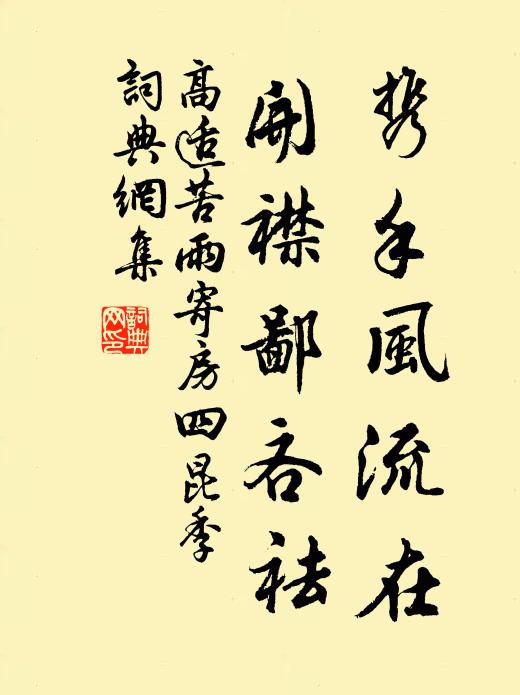 携手風流在
開襟鄙吝祛
高适苦雨寄房四昆季
詞典網集
詞典网印